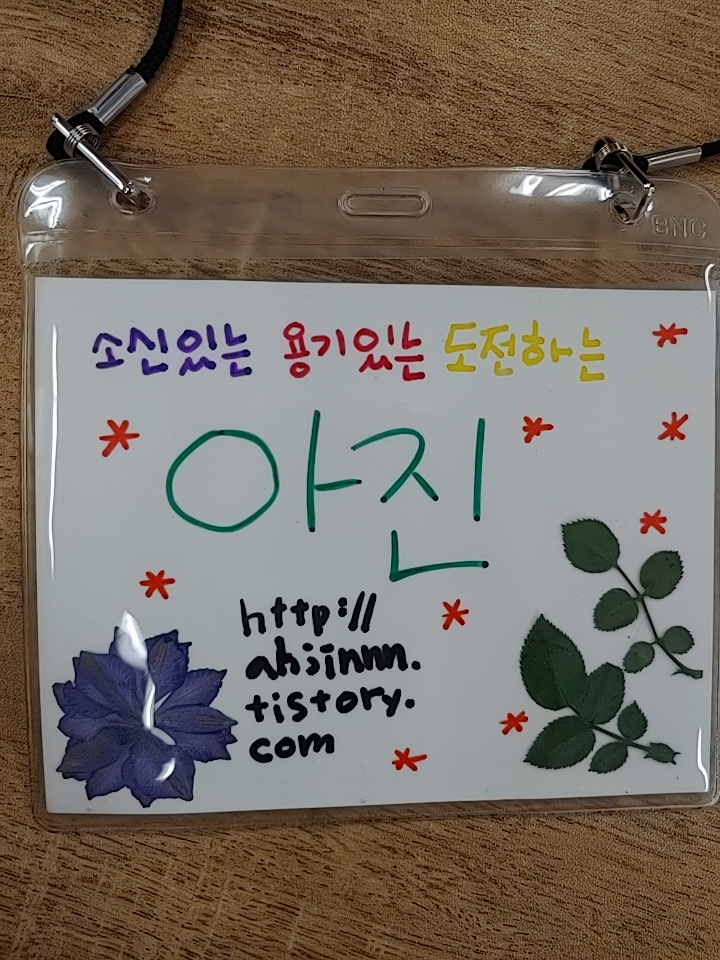 BNC
소신있는 용기있는 도전하는
아진
http://
ahjinnn.
tistory.
com